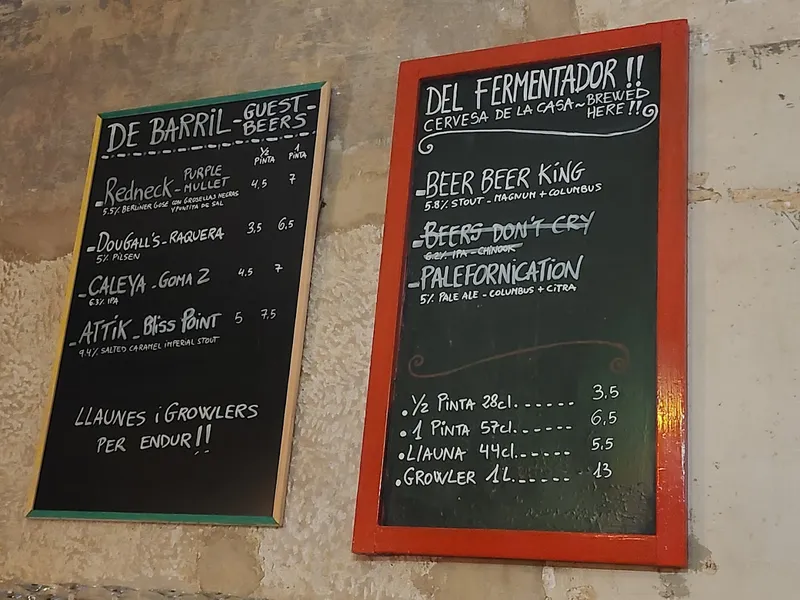 DE BARRIL - GUEST BEERS
½ PINTA 1 PINTA
- Redneck - PURPLE MULLET 4,5 7
5.5% BERLINER GOSE CON GROSELLAS NEGRAS Y PUNTITA DE SAL
- DOUGALL'S - RAQUERA 3,5 6,5
5% PILSEN
- CALEYA - GOMA 2 4.5 7
6.3% IPA
- ATTIK - Bliss POINT 5 7,5
9.4% SALTED CARAMEL IMPERIAL STOUT
LLAUNES i GROWLERS
PER ENDUR!!
DEL FERMENTADOR!!
CERVESA DE LA CASA ~ BREWED HERE!!
- BEER BEER KING
5.8% STOUT - MAGNUM + COLUMBUS
- BEERS DON'T CRY
6.2% IPA - CHINOOK
- PALEFORNICATION
5% PALE ALE - COLUMBUS + CITRA
• ½ PINTA 28cl....... 3,5
• 1 PINTA 57cl....... 6,5
• LLAUNA 44cl...... 5.5
• GROWLER 1L....... 13